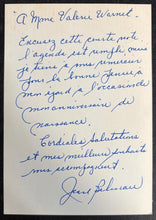 "A Mme Valerie Warnet.
Excusez cette courte note
l'agenda est rempli, mais
je tiens à vous remercier
pour la bonne pensée à
mon égard à l'occasion de
mon anniversaire de
naissance.
Cordiales salutations
et mes meilleurs souhaits
vous accompagnent.
Jean Béliveau